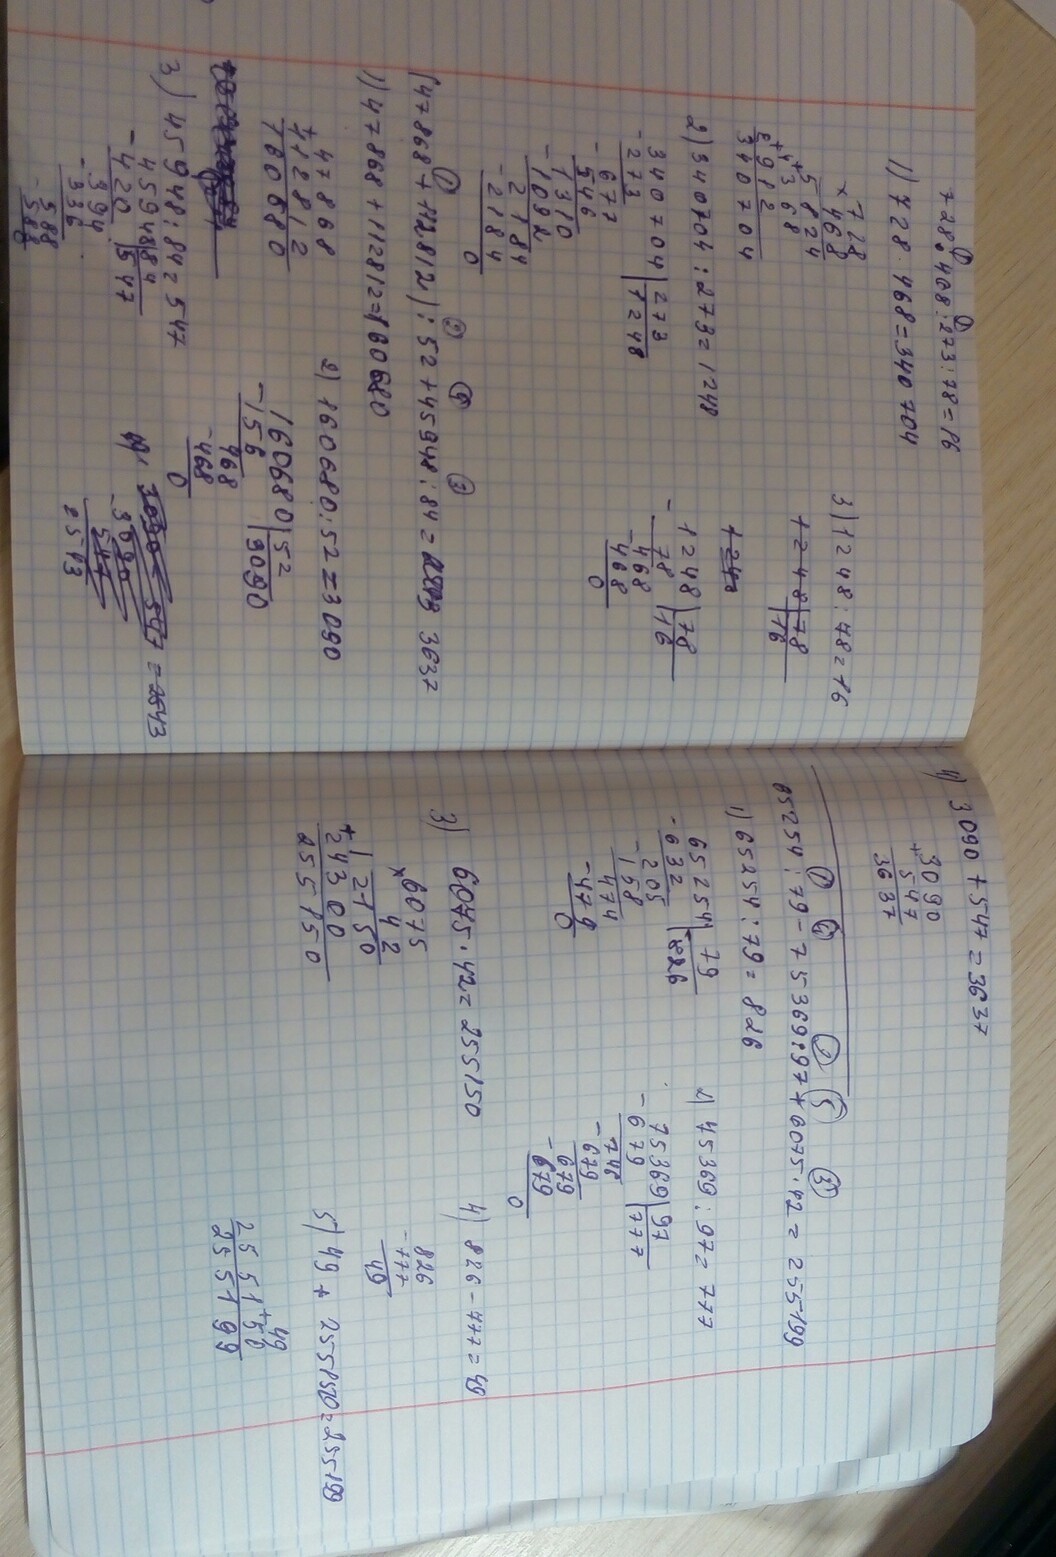 728·468:273:78=16
1) 728·468=340704
×728
468
5824
+4368
2912
340704
2) 340704:273=1248
340704|273
-273 1248
-677
546
-1310
1092
-2184
2184
0
3) 1248:78=16
1248|78
16
1248|78
-78 16
-468
468
0
(47868+112812):52+45948:84= 3637
1) 47868+112812=160680
47868
+112812
160680
2) 160680:52=3090
160680|52
-156 3090
468
-468
0
3) 45948:84=547
45948|84
-420 547
-394
336
-588
588
4) 3090+547=3637
3090
+547
3637
65254:79-75369:97+6075·42=255199
1) 65254:79=826
65254|79
-632 826
-205
158
-474
-474
0
2) 75369:97=777
75369|97
-679 777
-746
679
-679
679
0
3) 6075·42=255150
×6075
42
12150
+24300
255150
4) 826-777=49
826
-777
49
5) 49+255150=255199
49
+
255150
255199